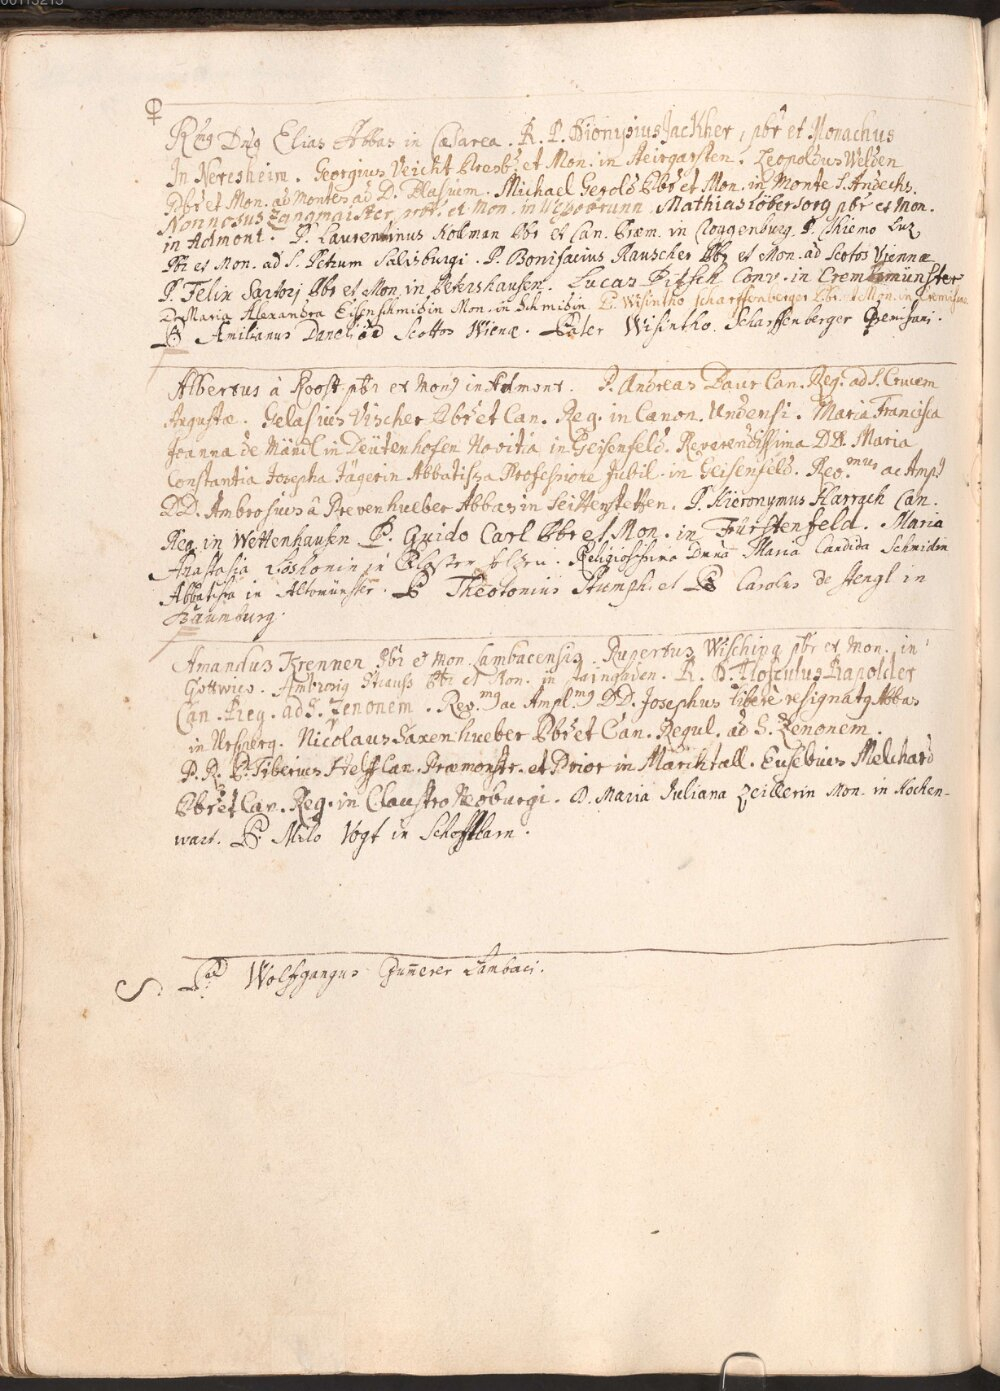 00113213
♀
Rmg Dng Elias Abbas in Cæsarea. R. P. Dionysius Jackher, pbr et Monachus
In Neresheim. Georgius Veicht Presb. et Mon. in Steirgarsten. Leopoldus Welden
Pbr et Mon. ad Montes ad D. Blasium. Michael Gerold Pbr et Mon. in Monte S. Andechs.
Nonnosus Zangmaister, prof. et Mon. in Wessobrunn. Mathias Löbersorg pbr et Mon.
in Admont. P. Laurentinus Kolman Pbr et Can. Præm. in Roggenburg. P. Chiemo Luz
Pbr et Mon. ad S. Petrum Salisburgi. P. Bonifacius Rauscher Pbr et Mon. ad Scotos Viennæ
P. Felix Sartorj Pbr et Mon in Petershausen. Lucas Pitsch Conv. in Cremsmünster
D. Maria Alexandra Eisenschmidin Mon. in Schmidin P. Wisintho Scharffenberger Pbr et Mon. in Cremifane
P. Amilianus Daneli ad Scottos Wienæ. Pater Wisintho Scharffenberger Cremifani.
Albertus à Roost pbr et Mong in Admont. P. Andreas Daur Can. Reg. ad S. Crucem
Augustæ. Gelasius Vischer Pbr et Can. Reg. in Canon. Undensi. Maria Francisca
Joanna de Mändl in Deütenhofen Novitia in Geisenfeld. Reverendissima DD. Maria
Constantia Josepha Jägerin Abbatissa Professione Jubil. in Geisenfeld. Revmus ac Ampl
DD. Ambrosius â Prevenhueber Abbas in Seittenstetten. P. Hieronymus Harrach Can.
Reg. in Wettenhausen P. Guido Carl Pbr et Mon. in Fürstenfeld. Maria
Anastasia in Closter Holzen. Religiosissima Dnna Maria Candida Schmidin
Abbatissa in Altomünster. P. Theotonius Stumph. et P. Carolus de Stengl in
Baumburg.
Amandus Krennen Pbr et Mon. Lambacensis. Rupertus Wisching pbr et Mon. in
Gottwico. Ambrosig Strauss Pbr et Mon. in Raingaden. R. D. Flosculus Rapolder
Can. Reg. ad S. Zenonem. Rev.mg ac Ampl.mg DD. Josephus liberè resignatg Abbas
in Ursperg. Nicolaus Saxenhueber Pbr et Can. Regul. ad S. Zenonem.
P. R. P. Tiberius Helff Can. Præmonstr. et Prior in Marchtall. Eusebius Melchard
Pbr et Can. Reg. in Claustro Neoburgi. D. Maria Juliana Zeillerin Mon. in Hochen-
wart. P. Milo Vogt in Schefftlarn.
S. Pad Wolffgangus Gumerer Lambaci.